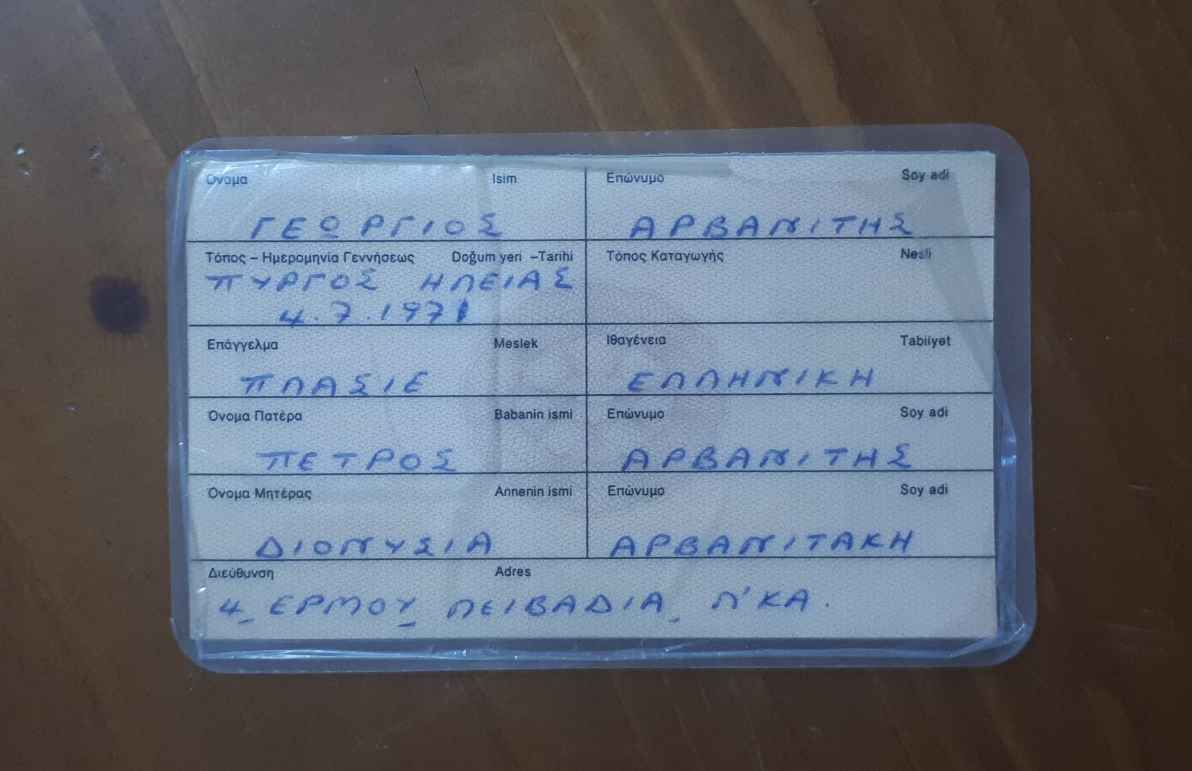 Ονομα Isim Επώνυμο Soy adi
ΓΕΩΡΓΙΟΣ ΑΡΒΑΝΙΤΗΣ
Τόπος – Ημερομηνία Γεννήσεως Doğum yeri –Tarihi Τόπος Καταγωγής Nesli
ΠΥΡΓΟΣ ΗΛΕΙΑΣ
4.7.1971
Επάγγελμα Meslek Ιθαγένεια Tabiiyet
ΠΛΑΣΙΕ ΕΛΛΗΝΙΚΗ
Ονομα Πατέρα Babanin ismi Επώνυμο Soy adi
ΠΕΤΡΟΣ ΑΡΒΑΝΙΤΗΣ
Ονομα Μητέρας Annenin ismi Επώνυμο Soy adi
ΔΙΟΝΥΣΙΑ ΑΡΒΑΝΙΤΑΚΗ
Διεύθυνση Adres
4, ΕΡΜΟΥ, ΛΕΙΒΑΔΙΑ, Λ'ΚΑ.